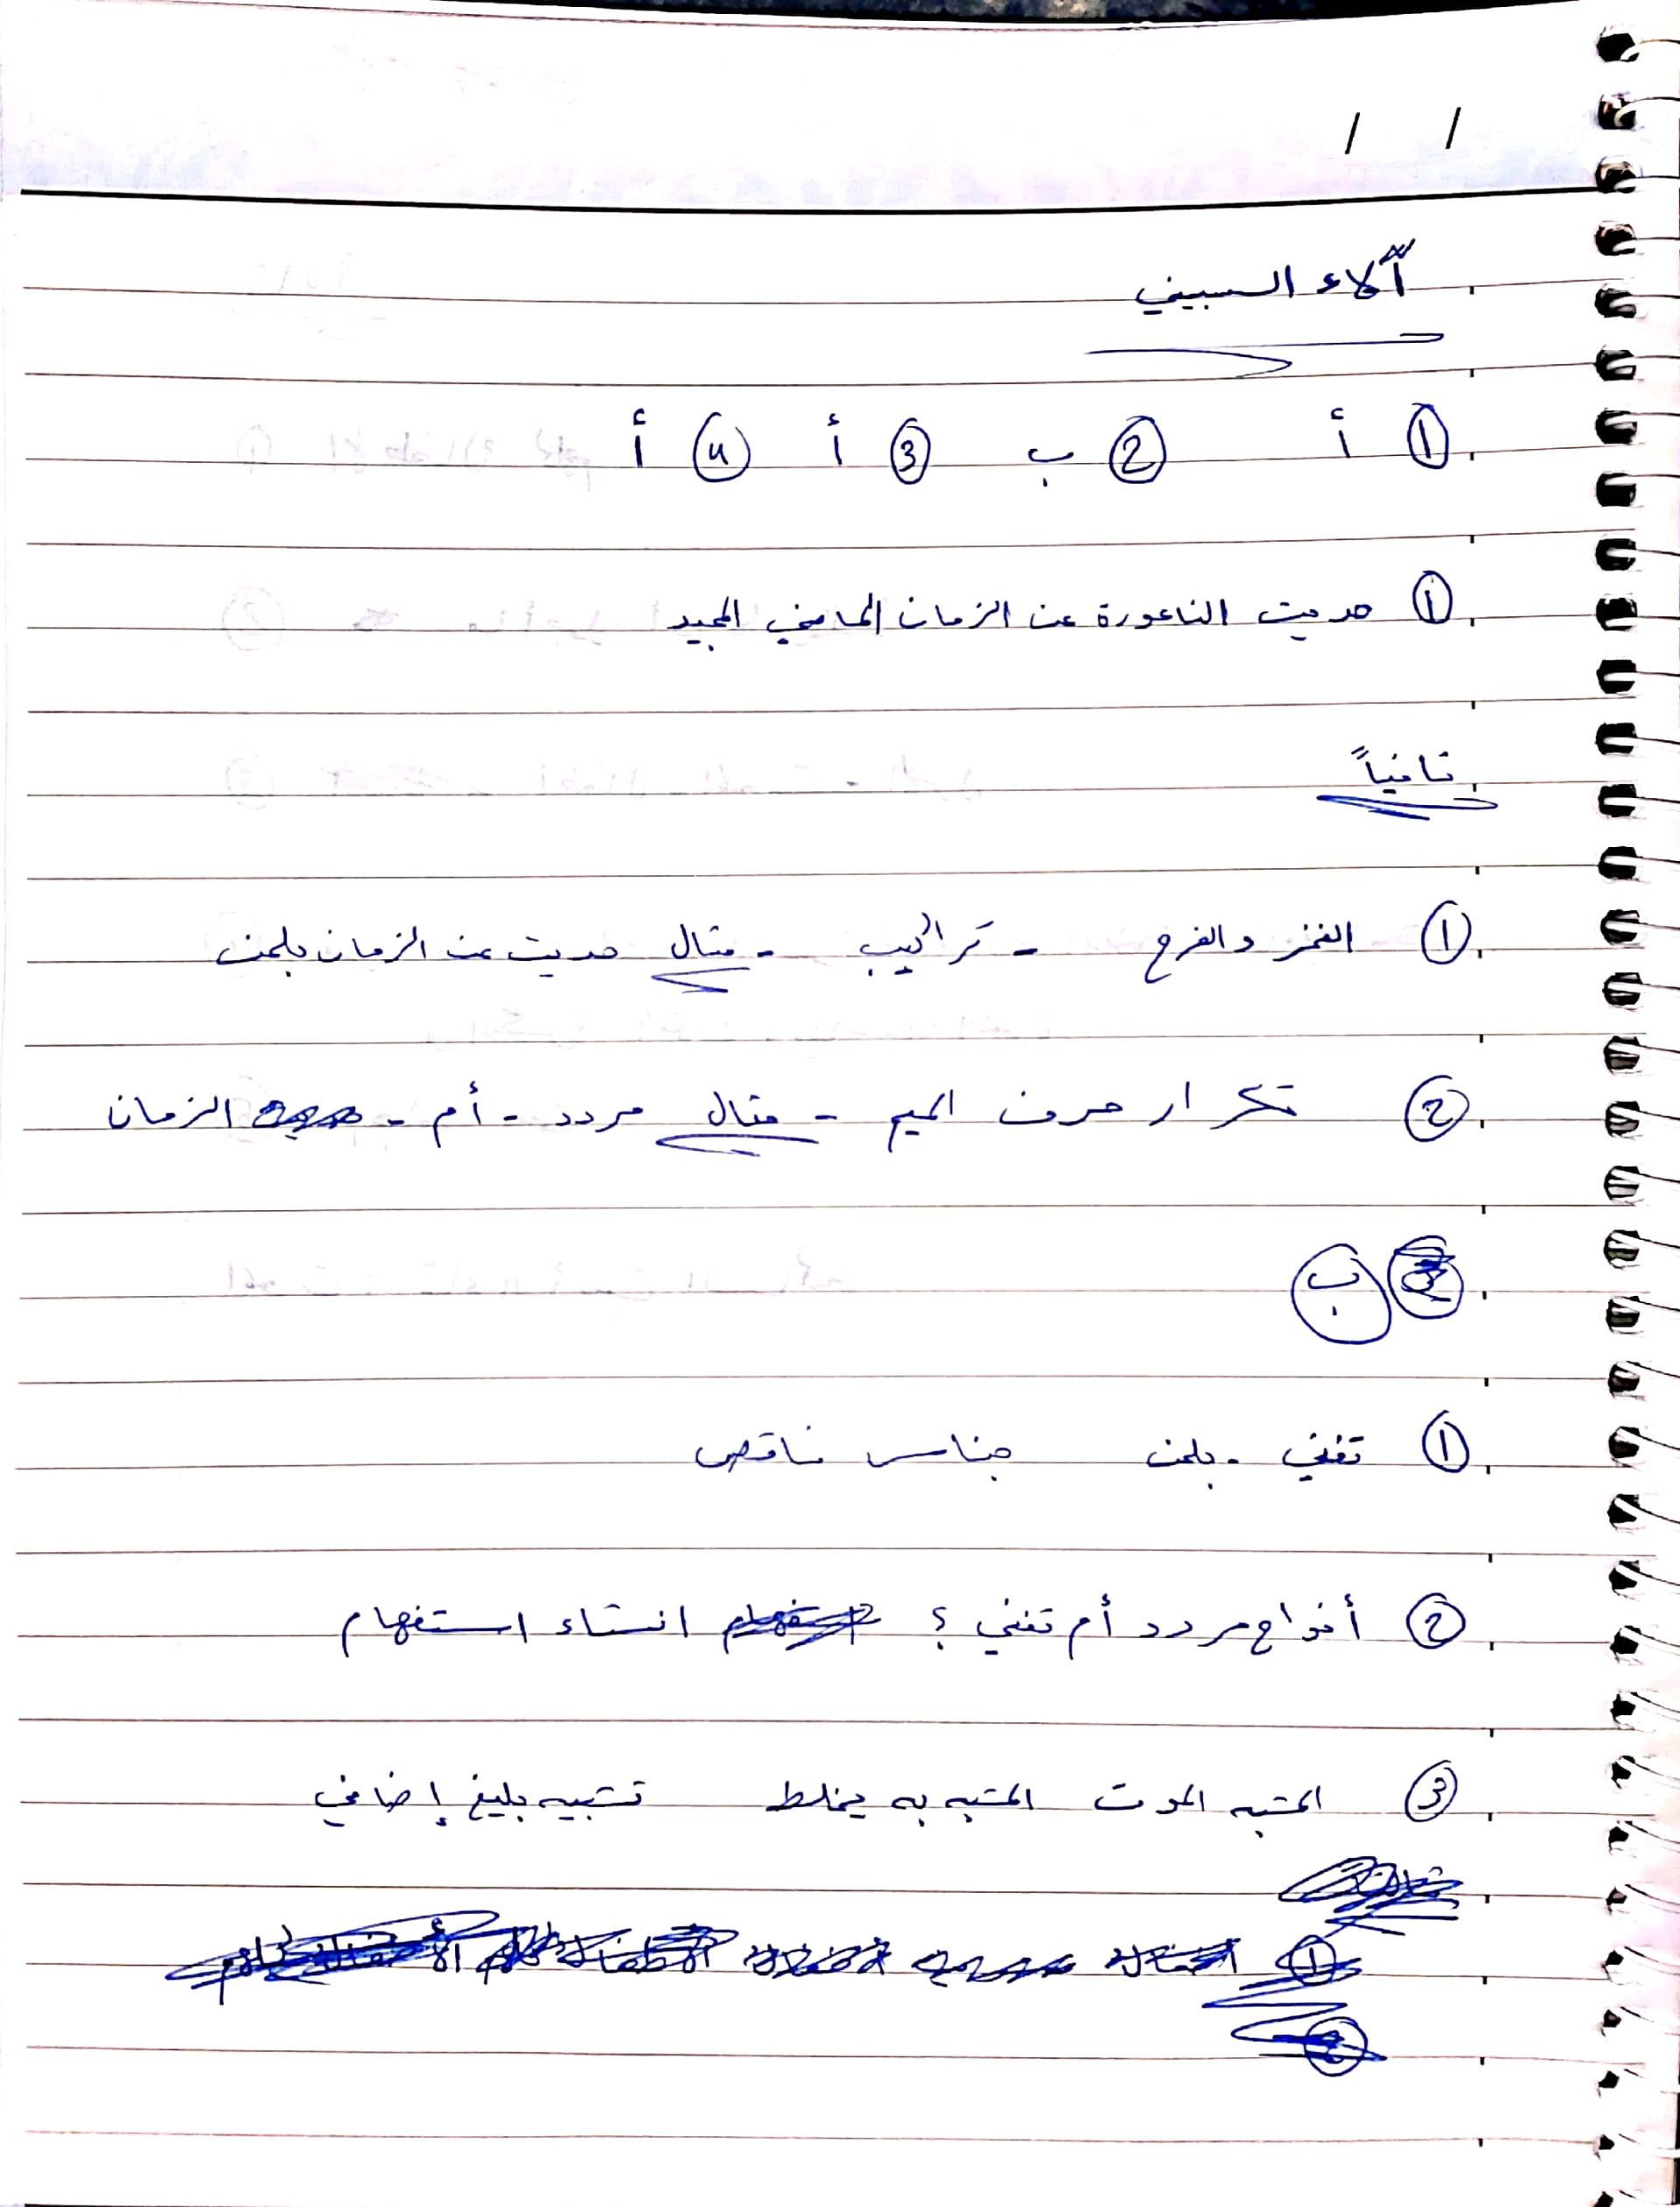 / /
آلاء السبيني
① أ ② ب ③ أ ④ أ
① حديث الناعورة عن الزمان الماضي المجيد
ثانياً
① الفخر والفرح - تراكيب - مثال حديث عن الزمان بلحن
② تكرار حرف الميم - مثال مردد - أم - الزمان
ب
① تغني - بلحن جناس ناقص
② أنواح مردد أم تغني ؟ انشاء استفهام
③ المشبه الموت المشبه به يخلط تشبيه بليغ إضافي